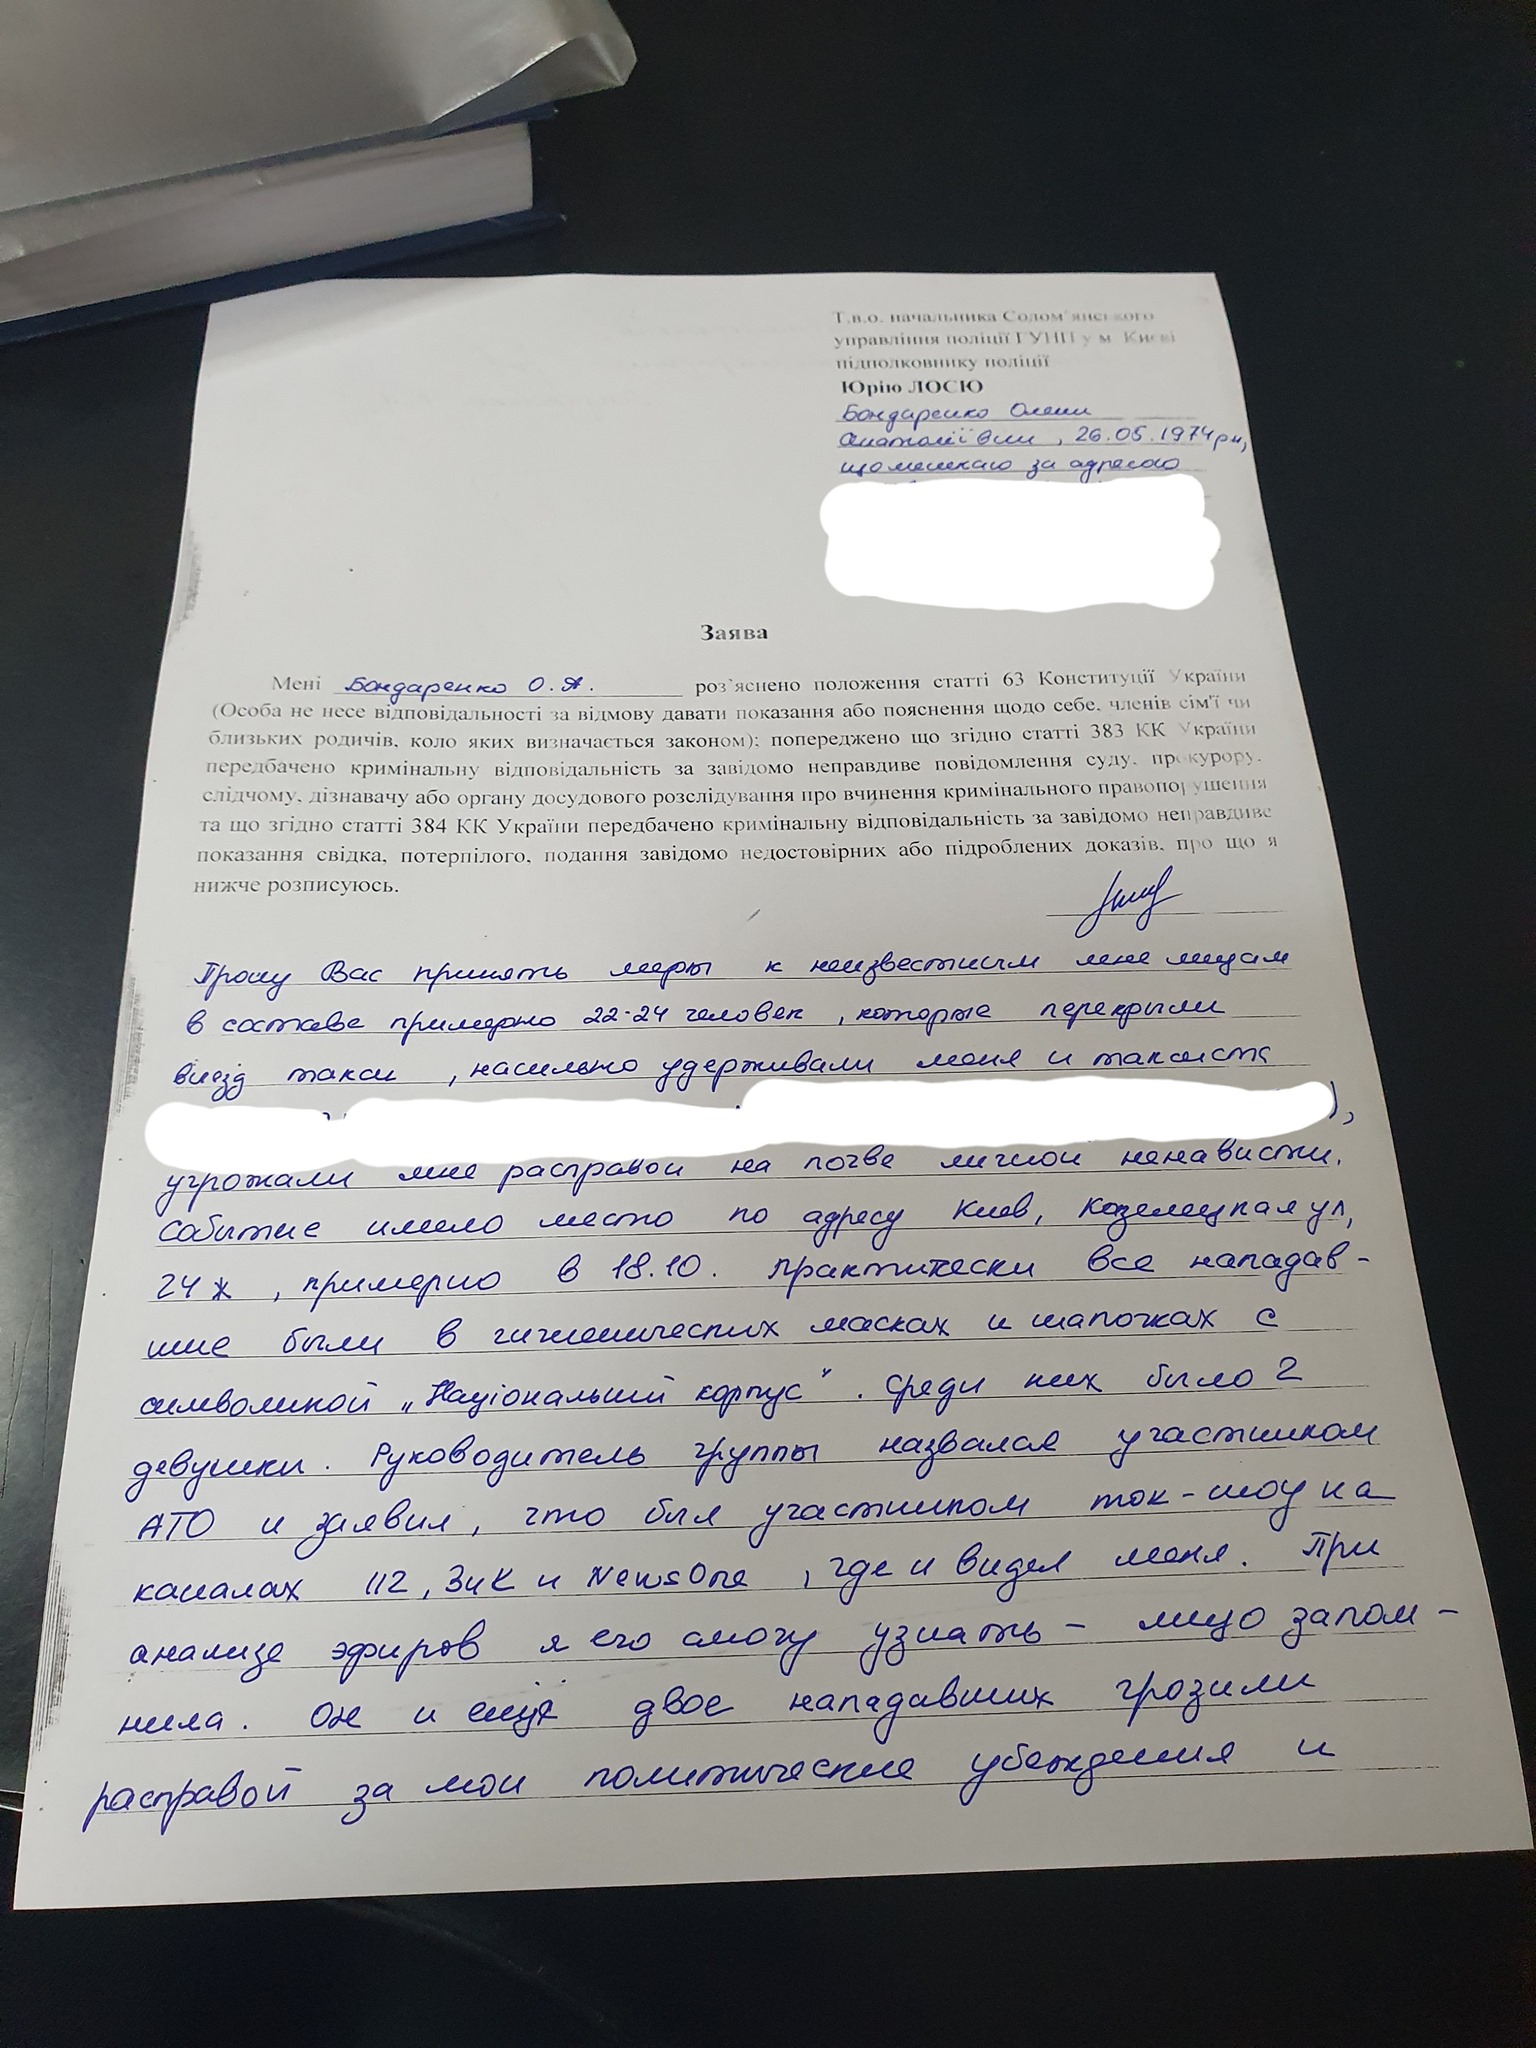 Т.в.о. начальника Солом'янського
управління поліції ГУНП у м. Києві
підполковнику поліції
Юрію ЛОСЮ
Бондаренко Олени
Анатоліївни, 26.05.1974рн,
що мешкаю за адресою
Заява
Мені Бондаренко О.А. роз'яснено положення статті 63 Конституції України
(Особа не несе відповідальності за відмову давати показання або пояснення щодо себе, членів сім'ї чи
близьких родичів, коло яких визначається законом); попереджено що згідно статті 383 КК України
передбачено кримінальну відповідальність за завідомо неправдиве повідомлення суду, прокурору,
слідчому, дізнавачу або органу досудового розслідування про вчинення кримінального правопорушення
та що згідно статті 384 КК України передбачено кримінальну відповідальність за завідомо неправдиве
показання свідка, потерпілого, подання завідомо недостовірних або підроблених доказів, про що я
нижче розписуюсь.
Прошу Вас принять меры к неизвестным мне лицам
в составе примерно 22-24 человек, которые перекрыли
виезд такси, насильно удерживали меня и таксиста
),
угрожали мне расправой на почве личной ненависти.
Событие имело место по адресу Киев, Козелецкая ул,
24ж, примерно в 18.10. Практически все нападав-
шие были в гигиенических масках и шапочках с
символикой „Національний корпус". Среди них было 2
девушки. Руководитель группы назвался участником
АТО и заявил, что был участником ток-шоу на
каналах 112, ЗиК и NewsOne, где и видел меня. При
анализе эфиров я его смогу узнать - лицо запом-
нила. Он и ещё двое нападавших грозили
расправой за мои политические убеждения и